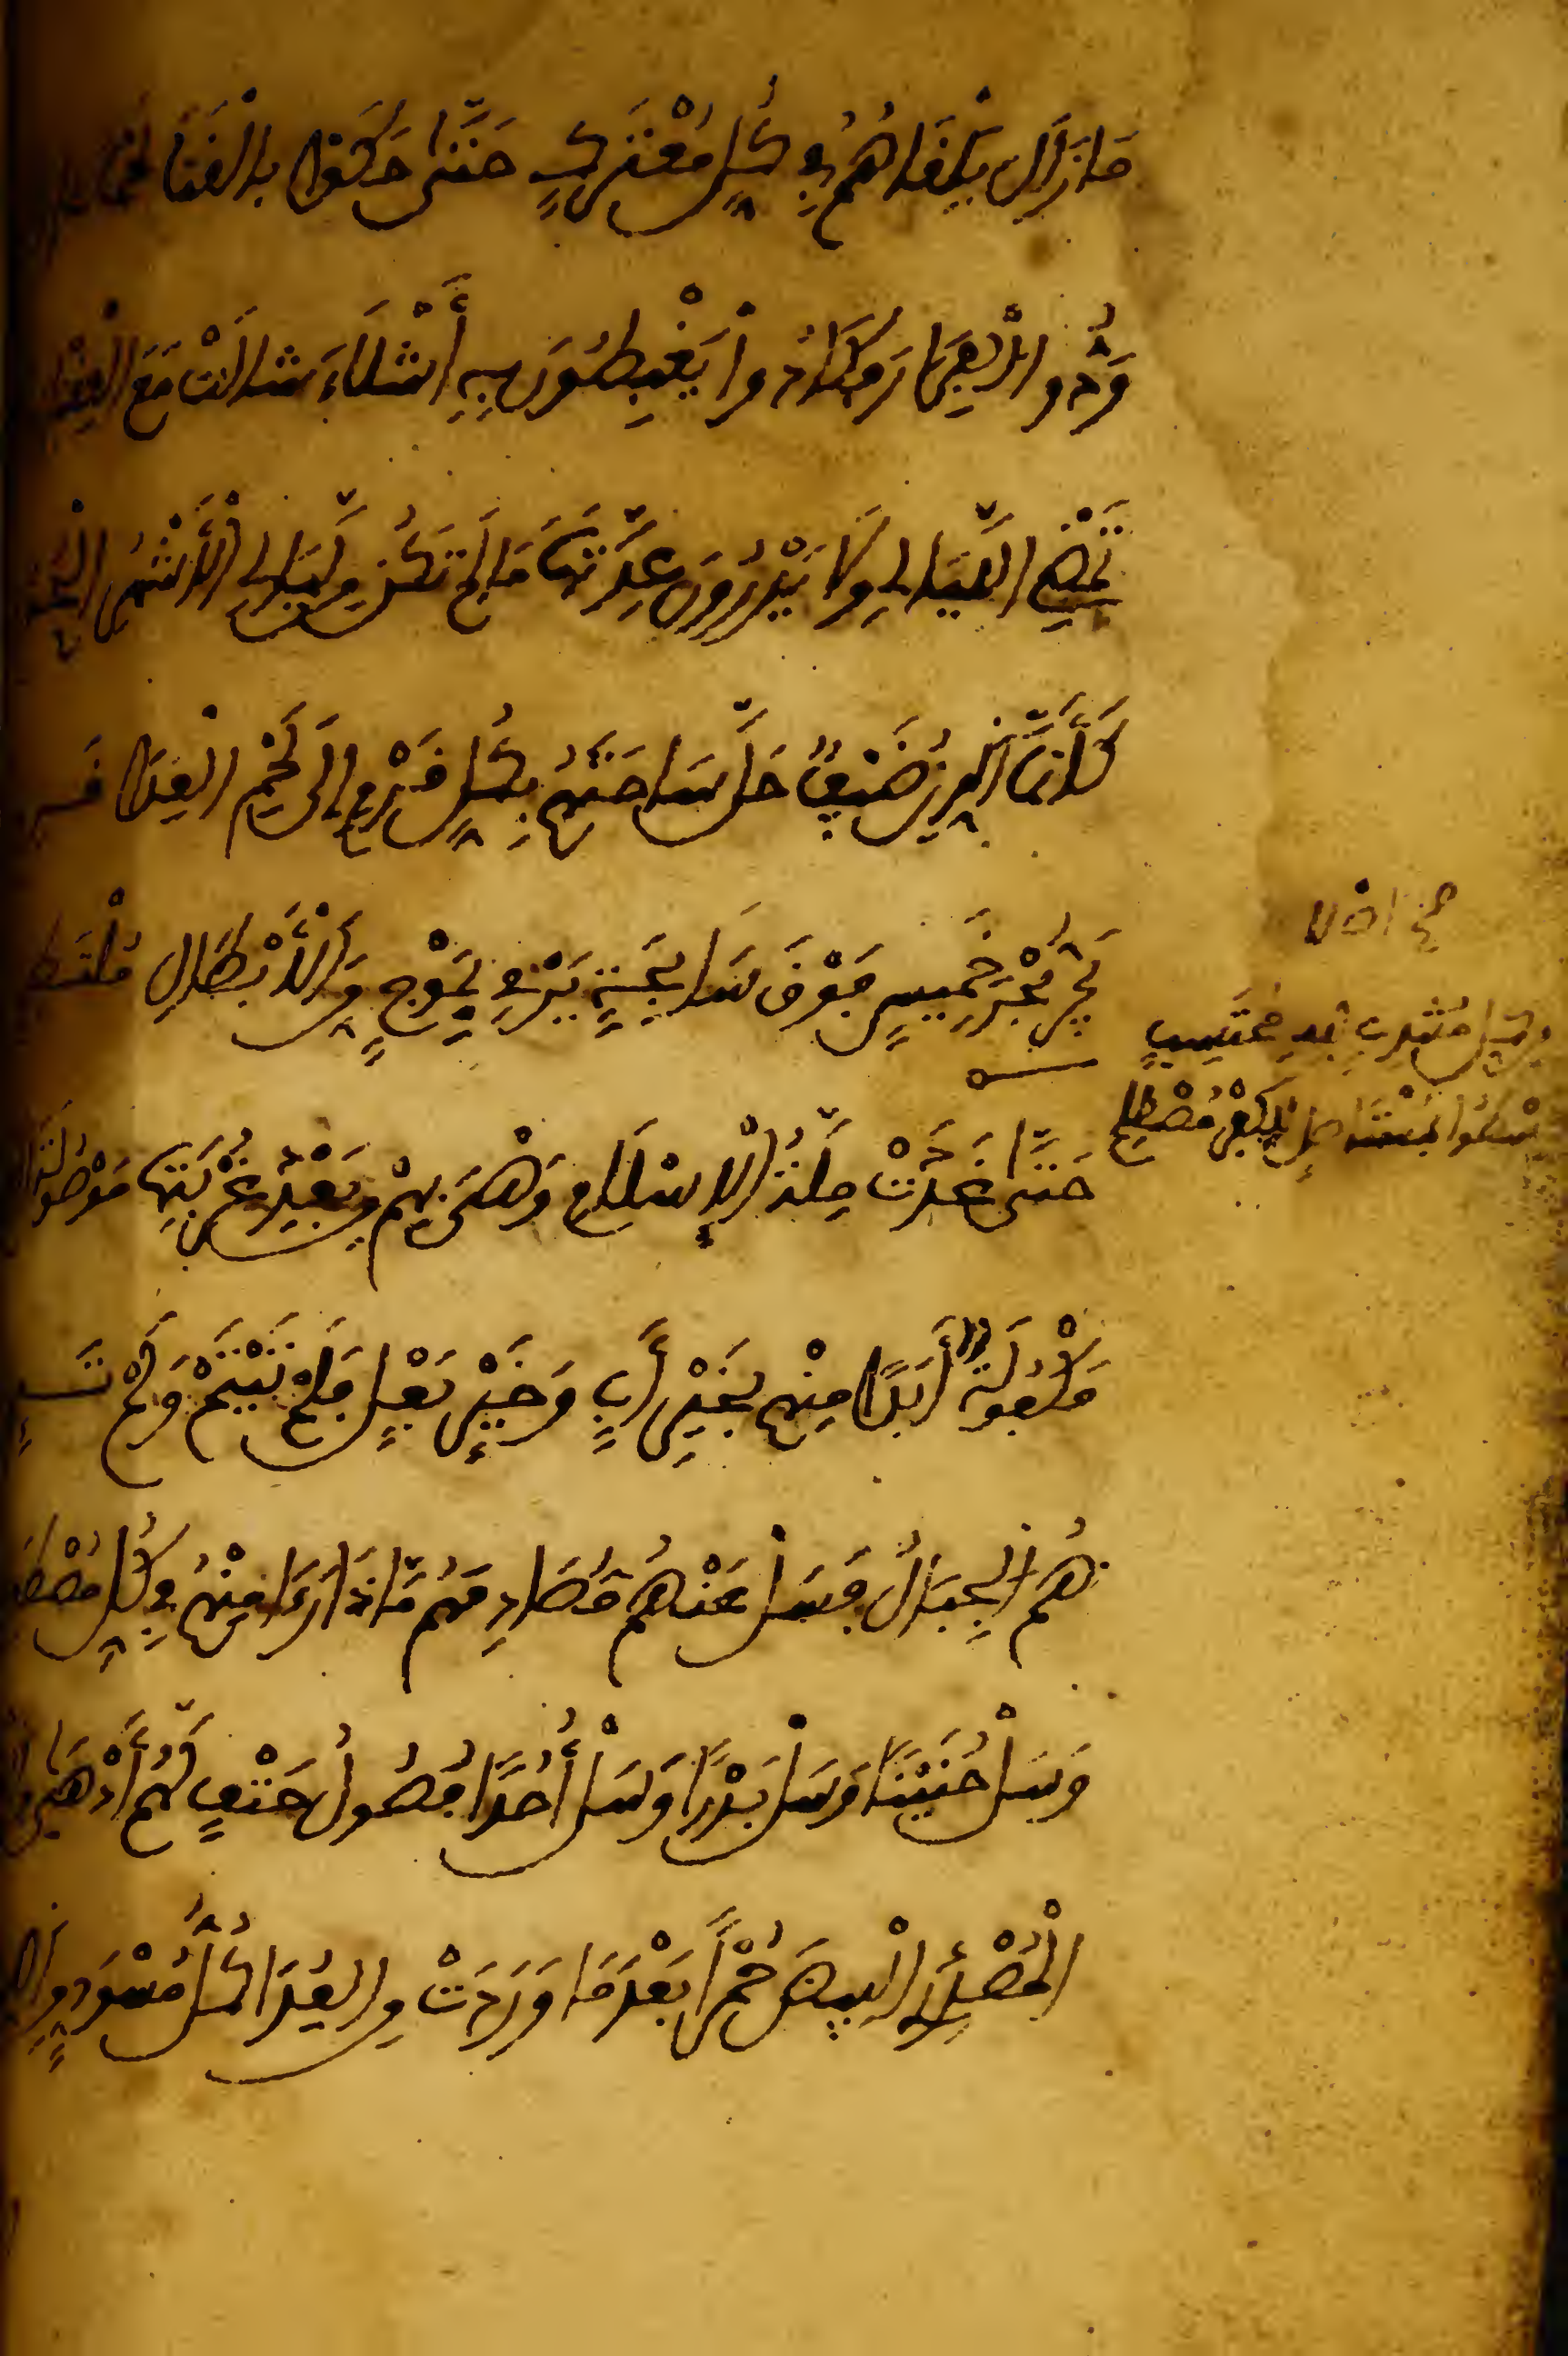 مَا زَالَ يَلْقَاهُمُ فِي كُلِّ مُعْتَرَكٍ حَتَّى حَكَوْا بِالْقَنَا
وَدُّوا الْفِرَارَ وَكَادُوا يَغْبِطُونَ بِهِ أَشْلَاءَ شَالَتْ مَعَ الْعِقْبَانِ
تَمْضِي اللَّيَالِي وَلَا يَدْرُونَ عِدَّتَهَا مَا لَمْ تَكُنْ مِنْ لَيَالِي الْأَشْهُرِ الْحُرُمِ
كَأَنَّمَا الدِّينُ ضَيْفٌ حَلَّ سَاحَتَهُمْ بِكُلِّ قَرْمٍ إِلَى لَحْمِ الْعِدَا
يَجُرُّ بَحْرَ خَمِيسٍ فَوْقَ سَابِحَةٍ يَرْمِي بِمَوْجٍ مِنَ الْأَبْطَالِ مُلْتَطِمِ
مُنْتَدِبٍ لِلَّهِ مُحْتَسِبٍ
يَسْطُوا بِمُسْتَأْصِلٍ لِلْكُفْرِ مُصْطَلِمِ
حَتَّى غَدَتْ مِلَّةُ الْإِسْلَامِ وَهْيَ بِهِمْ مِنْ بَعْدِ غُرْبَتِهَا مَوْصُولَةَ
مَكْفُولَةً أَبَدًا مِنْهُمْ بِخَيْرِ أَبٍ وَخَيْرِ بَعْلٍ فَلَمْ تَيْتَمْ وَلَمْ
هُمُ الْجِبَالُ فَسَلْ عَنْهُمْ مُصَادِمَهُمْ مَاذَا رَءَا مِنْهُمْ فِي كُلِّ مُصْطَدَمِ
وَسَلْ حُنَيْنًا وَسَلْ بَدْرًا وَسَلْ أُحُدًا فُصُولُ حَتْفٍ لَهُمْ أَدْهَى
الْمُصْدِرِي الْبِيضَ حُمْرًا بَعْدَمَا وَرَدَتْ مِنَ الْعِدَا كُلَّ مُسْوَدٍّ مِنَ